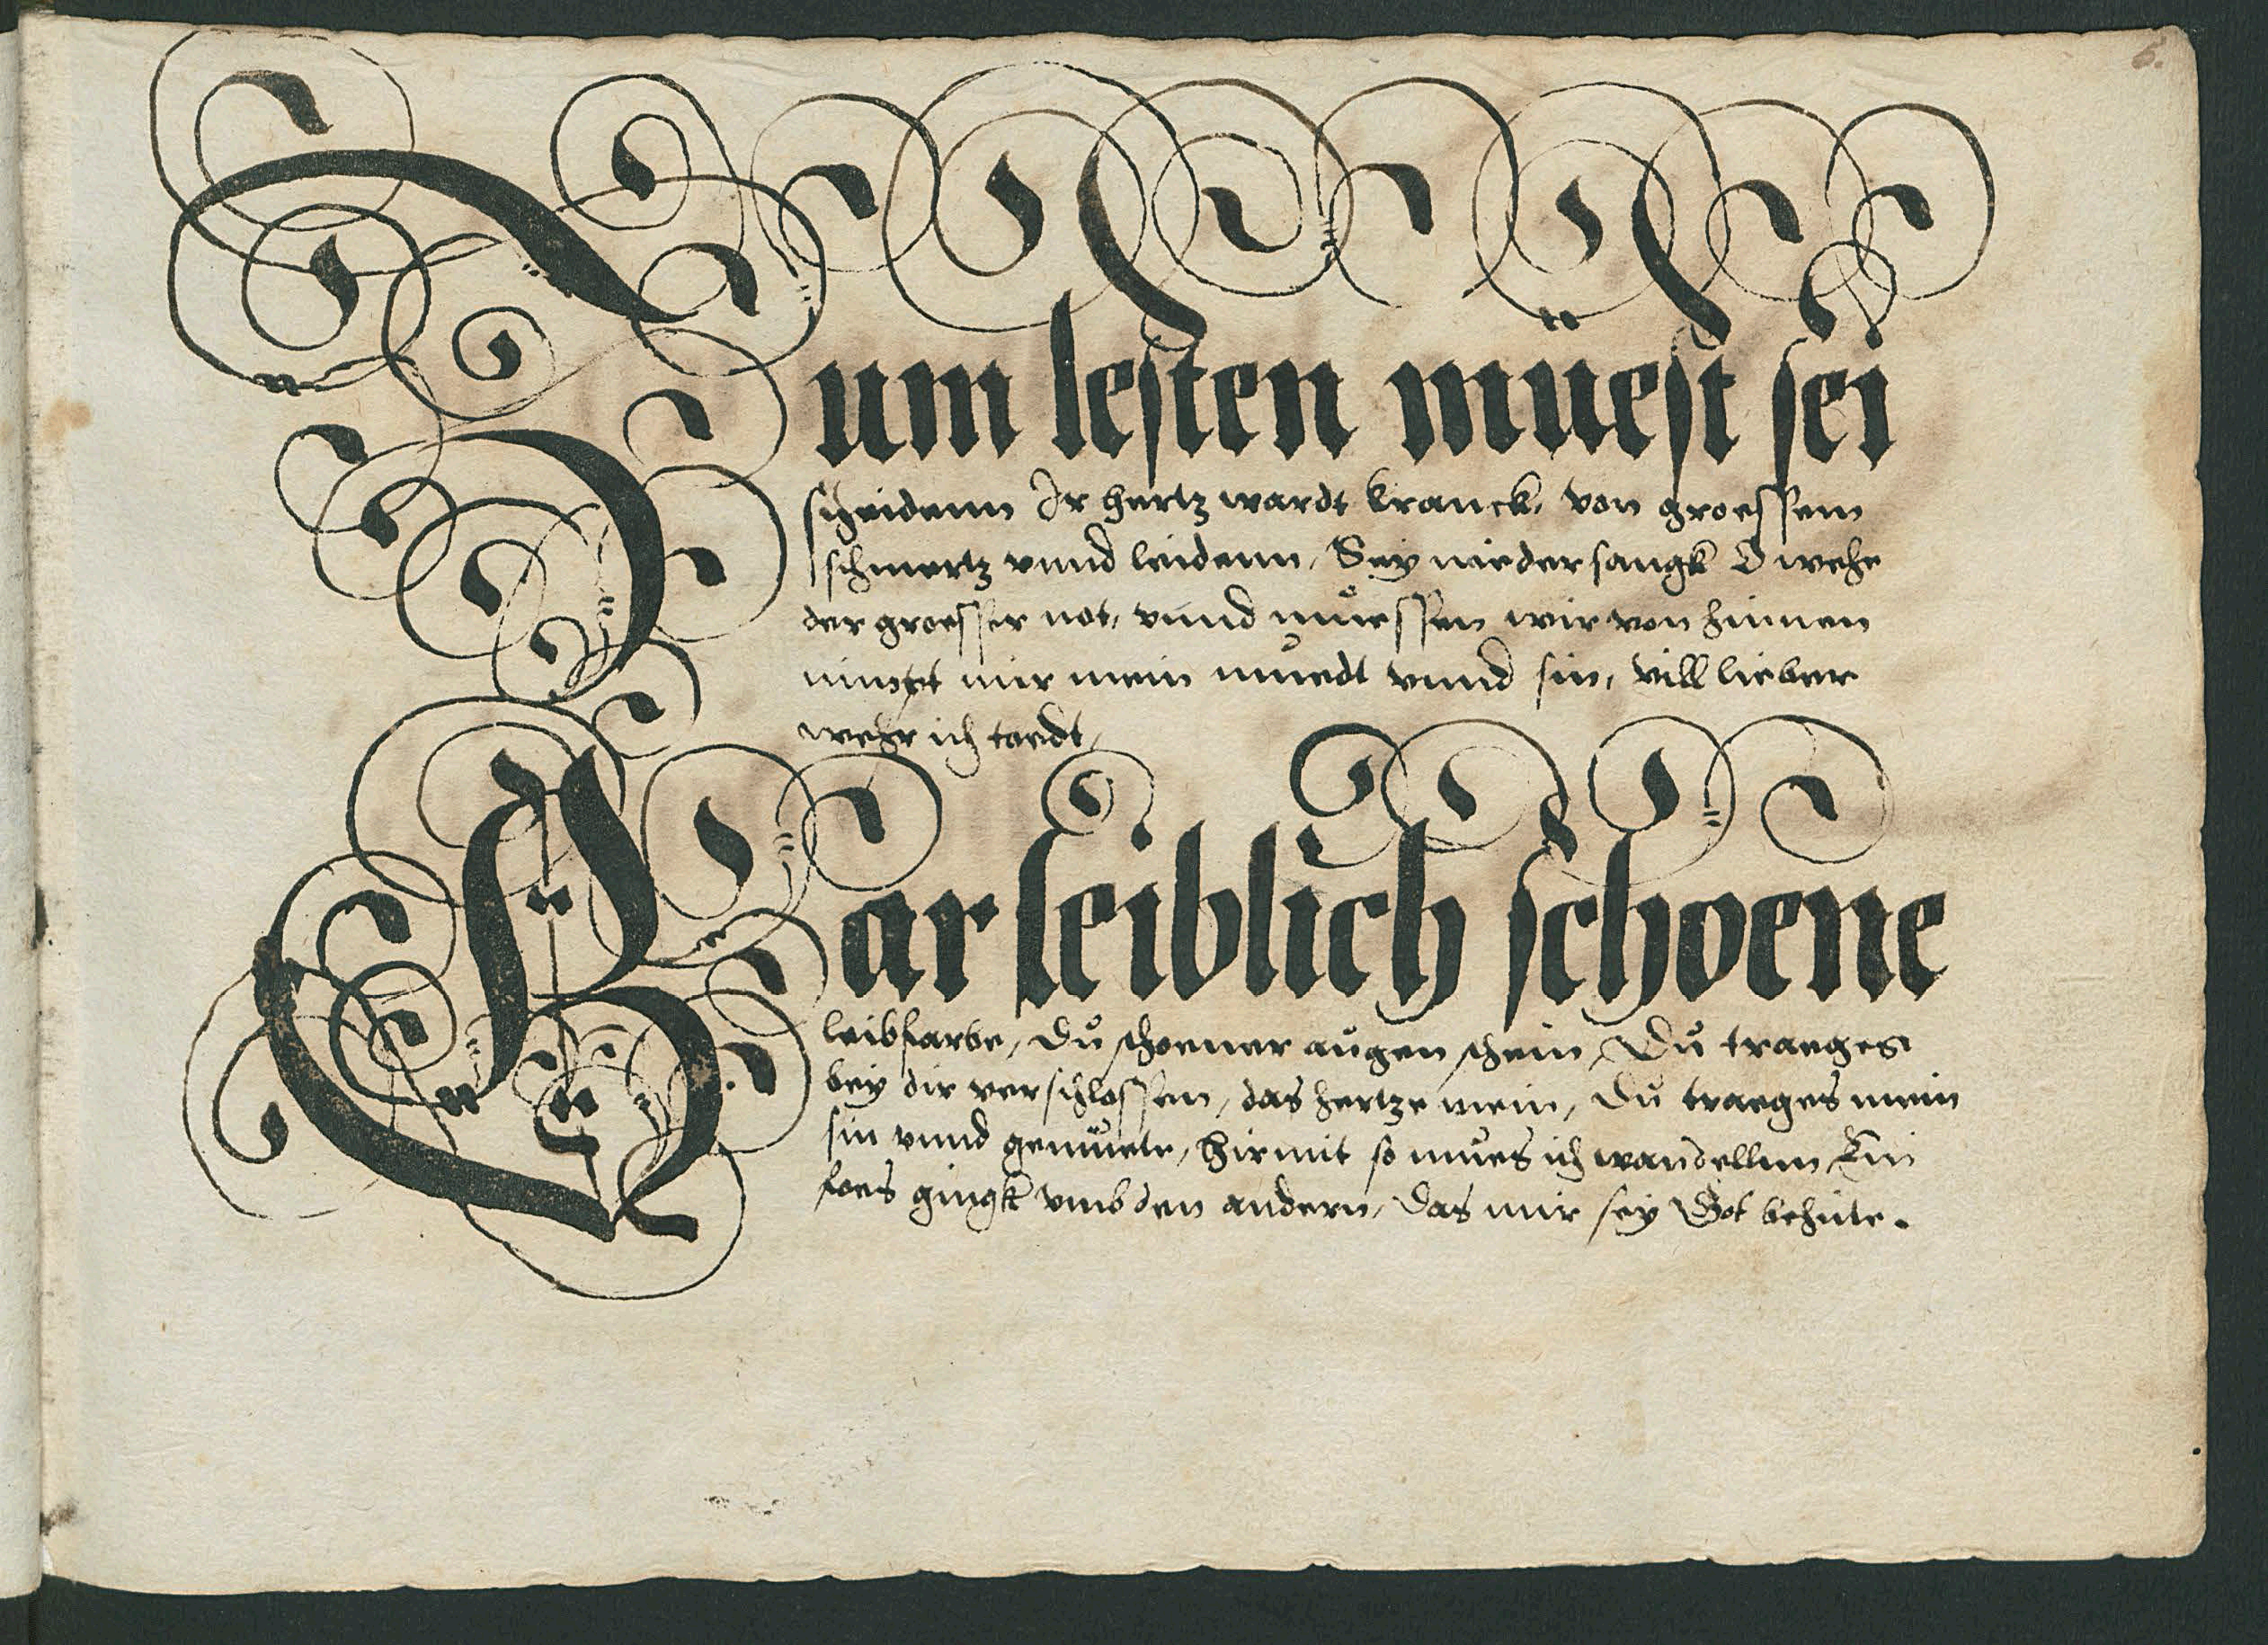 6.
Zum lesten müest sei
scheidenn Ir hertz wardt kranck, von groessem
schmertz vnnd leidenn, Sey nieder sangk O wehe
der groesser not, vnnd müessen wir von hinnen
nimpt mir mein muedt vnnd sin, vill lieber
wehr ich toedt,
Gar leiblich schoene
leibfarbe, Du schoener augen schein, Du traeges
bey dir verschlossen, das hertze mein, Du traeges mein
sin vnnd gemüete, hirmit so mues ich wandellnn Ein
foes gingk vmb den andern, Das mir sey Got behüte.